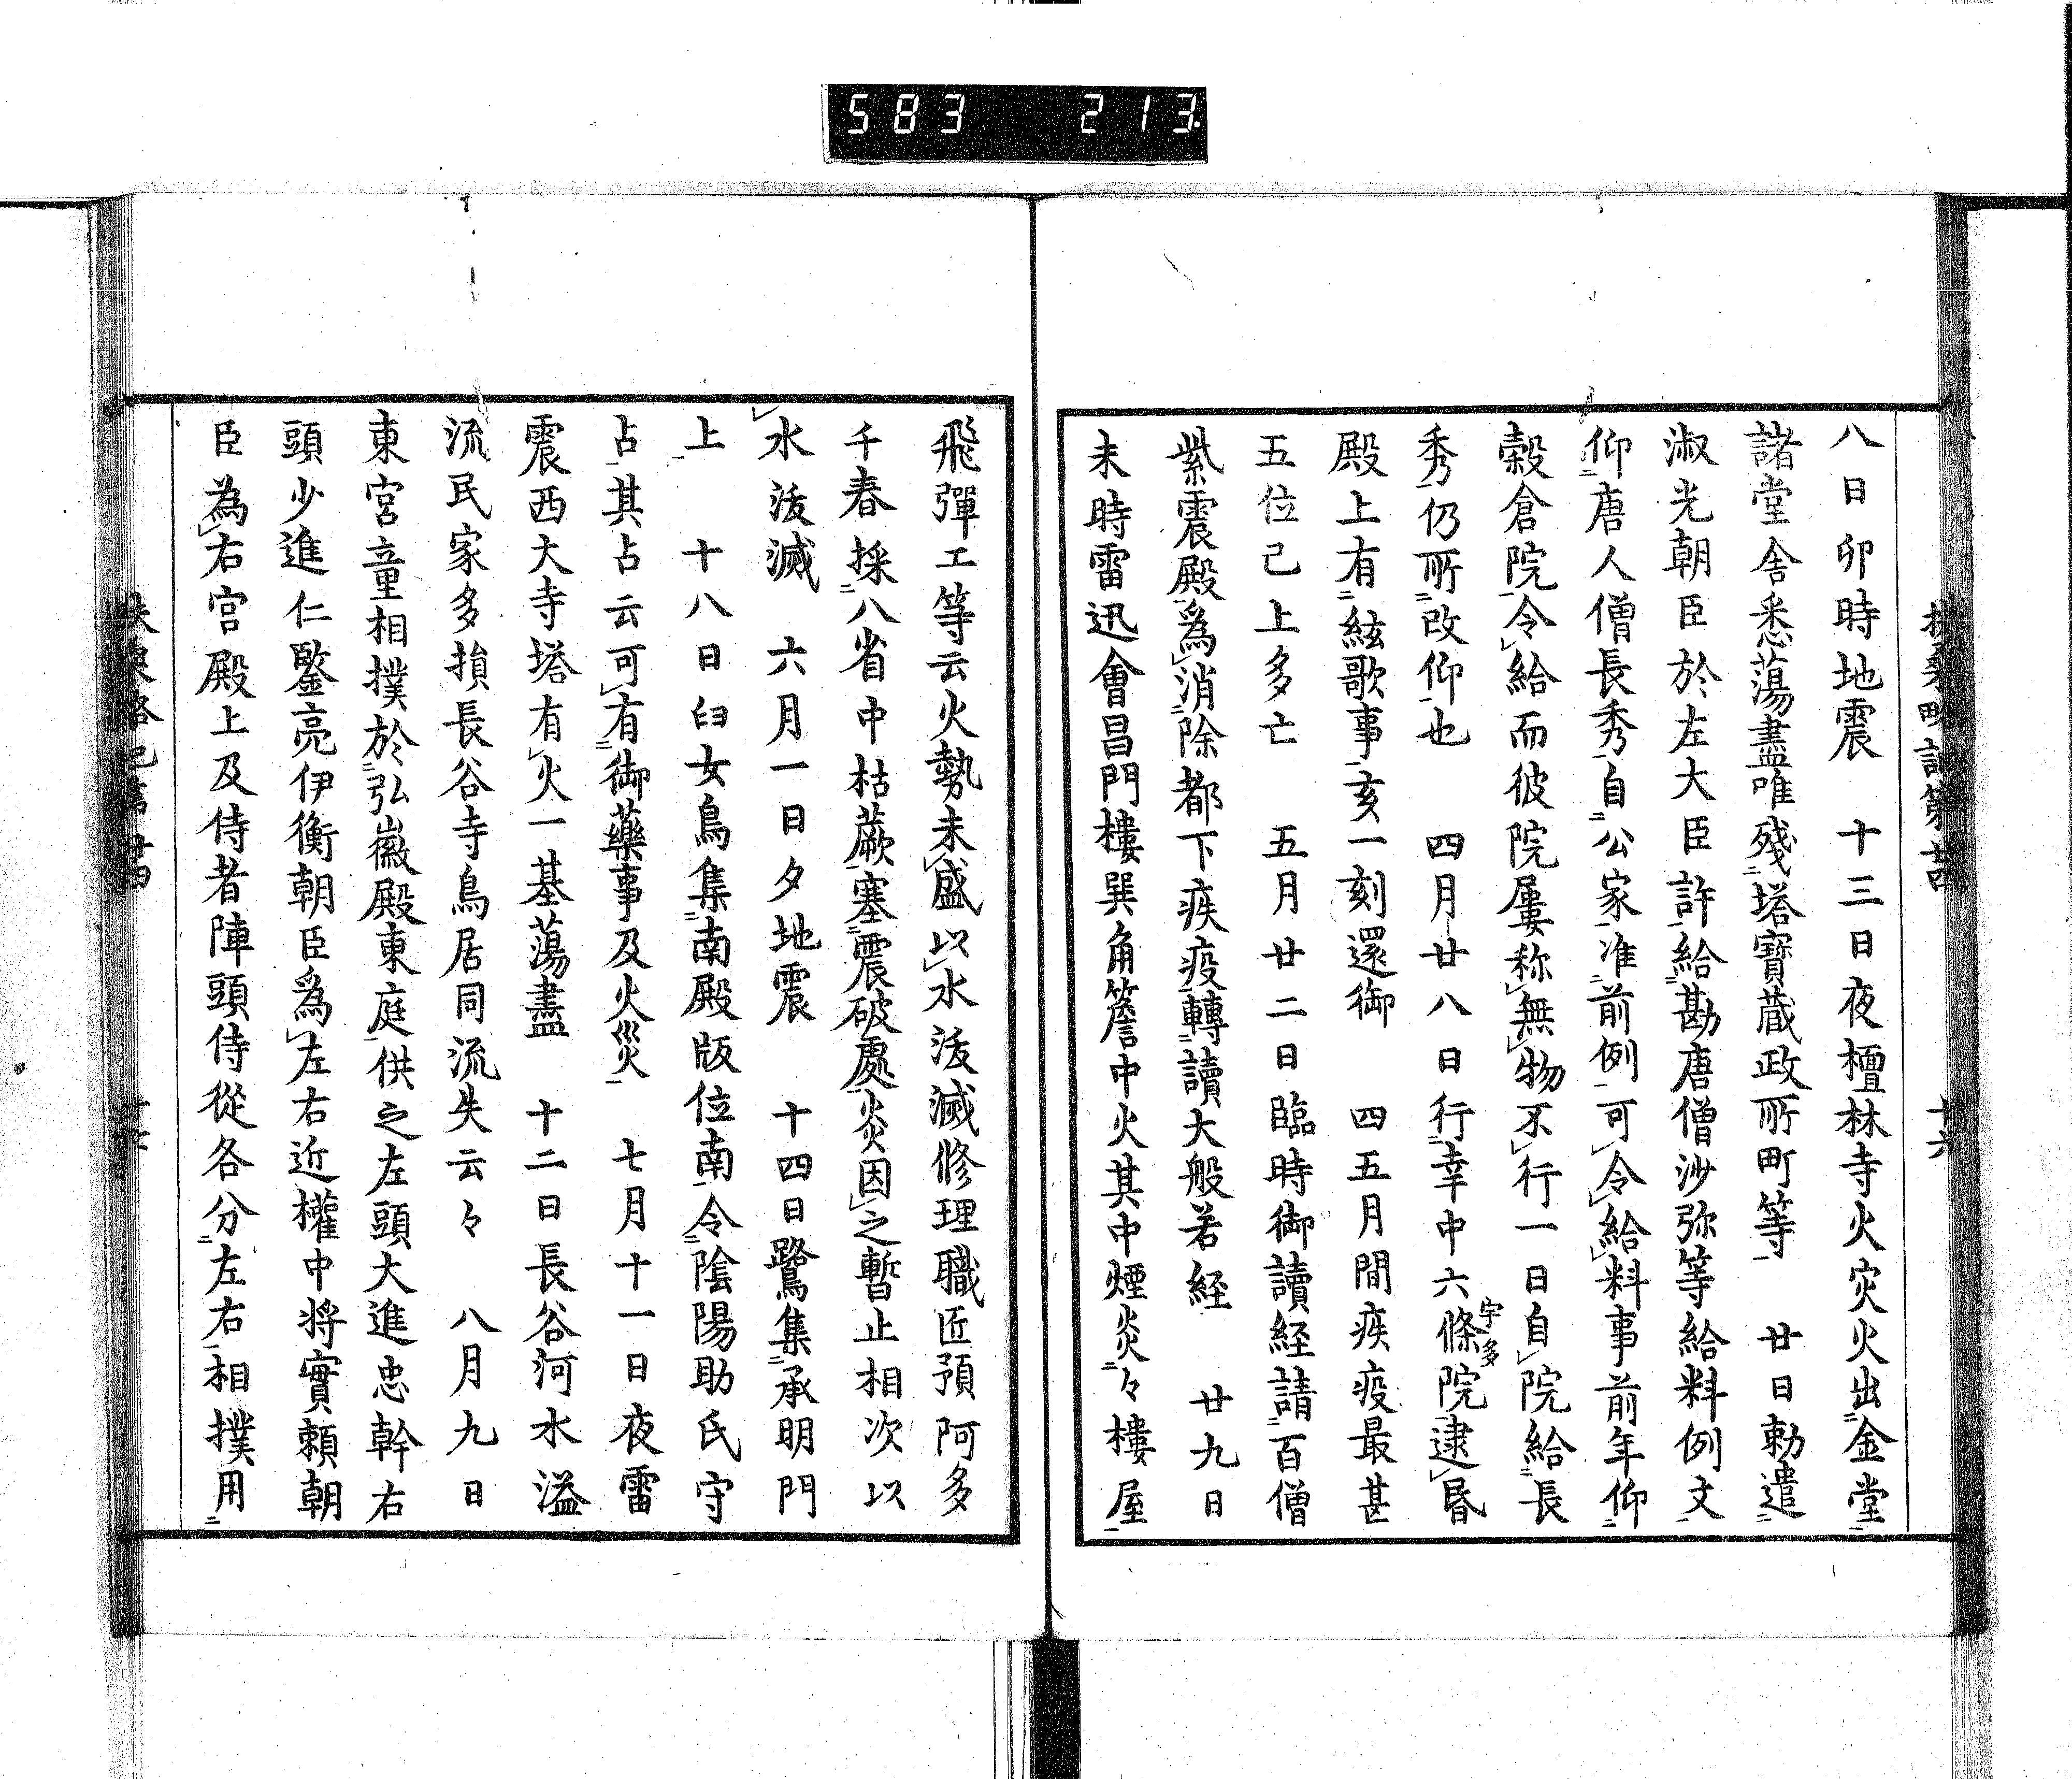 583 213.
八日卯時地震　十三日夜檀林寺火灾火出金堂
諸堂舎悉蕩盡唯殘塔寶蔵政所町等　廿日勅遣
淑光朝臣於左大臣許給勘唐僧沙弥等給料例文
仰唐人僧長秀自公家准前例可令給料事前年仰
穀倉院令給而彼院屢称無物不行一日自院給長
秀仍所改仰也　四月廿八日行幸中六條院逮昏
宇多
殿上有絃歌事亥一刻還御　四五月間疾疫最甚
五位已上多亡　五月廿二日臨時御讀経請百僧
紫震殿為消除都下疾疫轉讀大般若経　廿九日
未時雷迅會昌門樓巽角簷中火其中煙炎々樓屋
十六
飛彈工等云火勢未盛以水活滅修理職匠預阿多
千春採八省中枯蕨塞震破處炎因之暫止相次以
水活滅　六月一日夕地震　十四日鷺集承明門
上　十八日臼女鳥集南殿版位南令陰陽助氏守
占其占云可有御藥事及火災　七月十一日夜雷
震西大寺塔有火一基蕩盡　十二日長谷河水溢
流民家多損長谷寺鳥居同流失云々　八月九日
東宮童相撲於弘徽殿東庭供之左頭大進忠幹右
頭少進仁鑒亮伊衡朝臣為左右近權中将實頼朝
臣為右宮殿上及侍者陣頭侍從各分左右相撲用